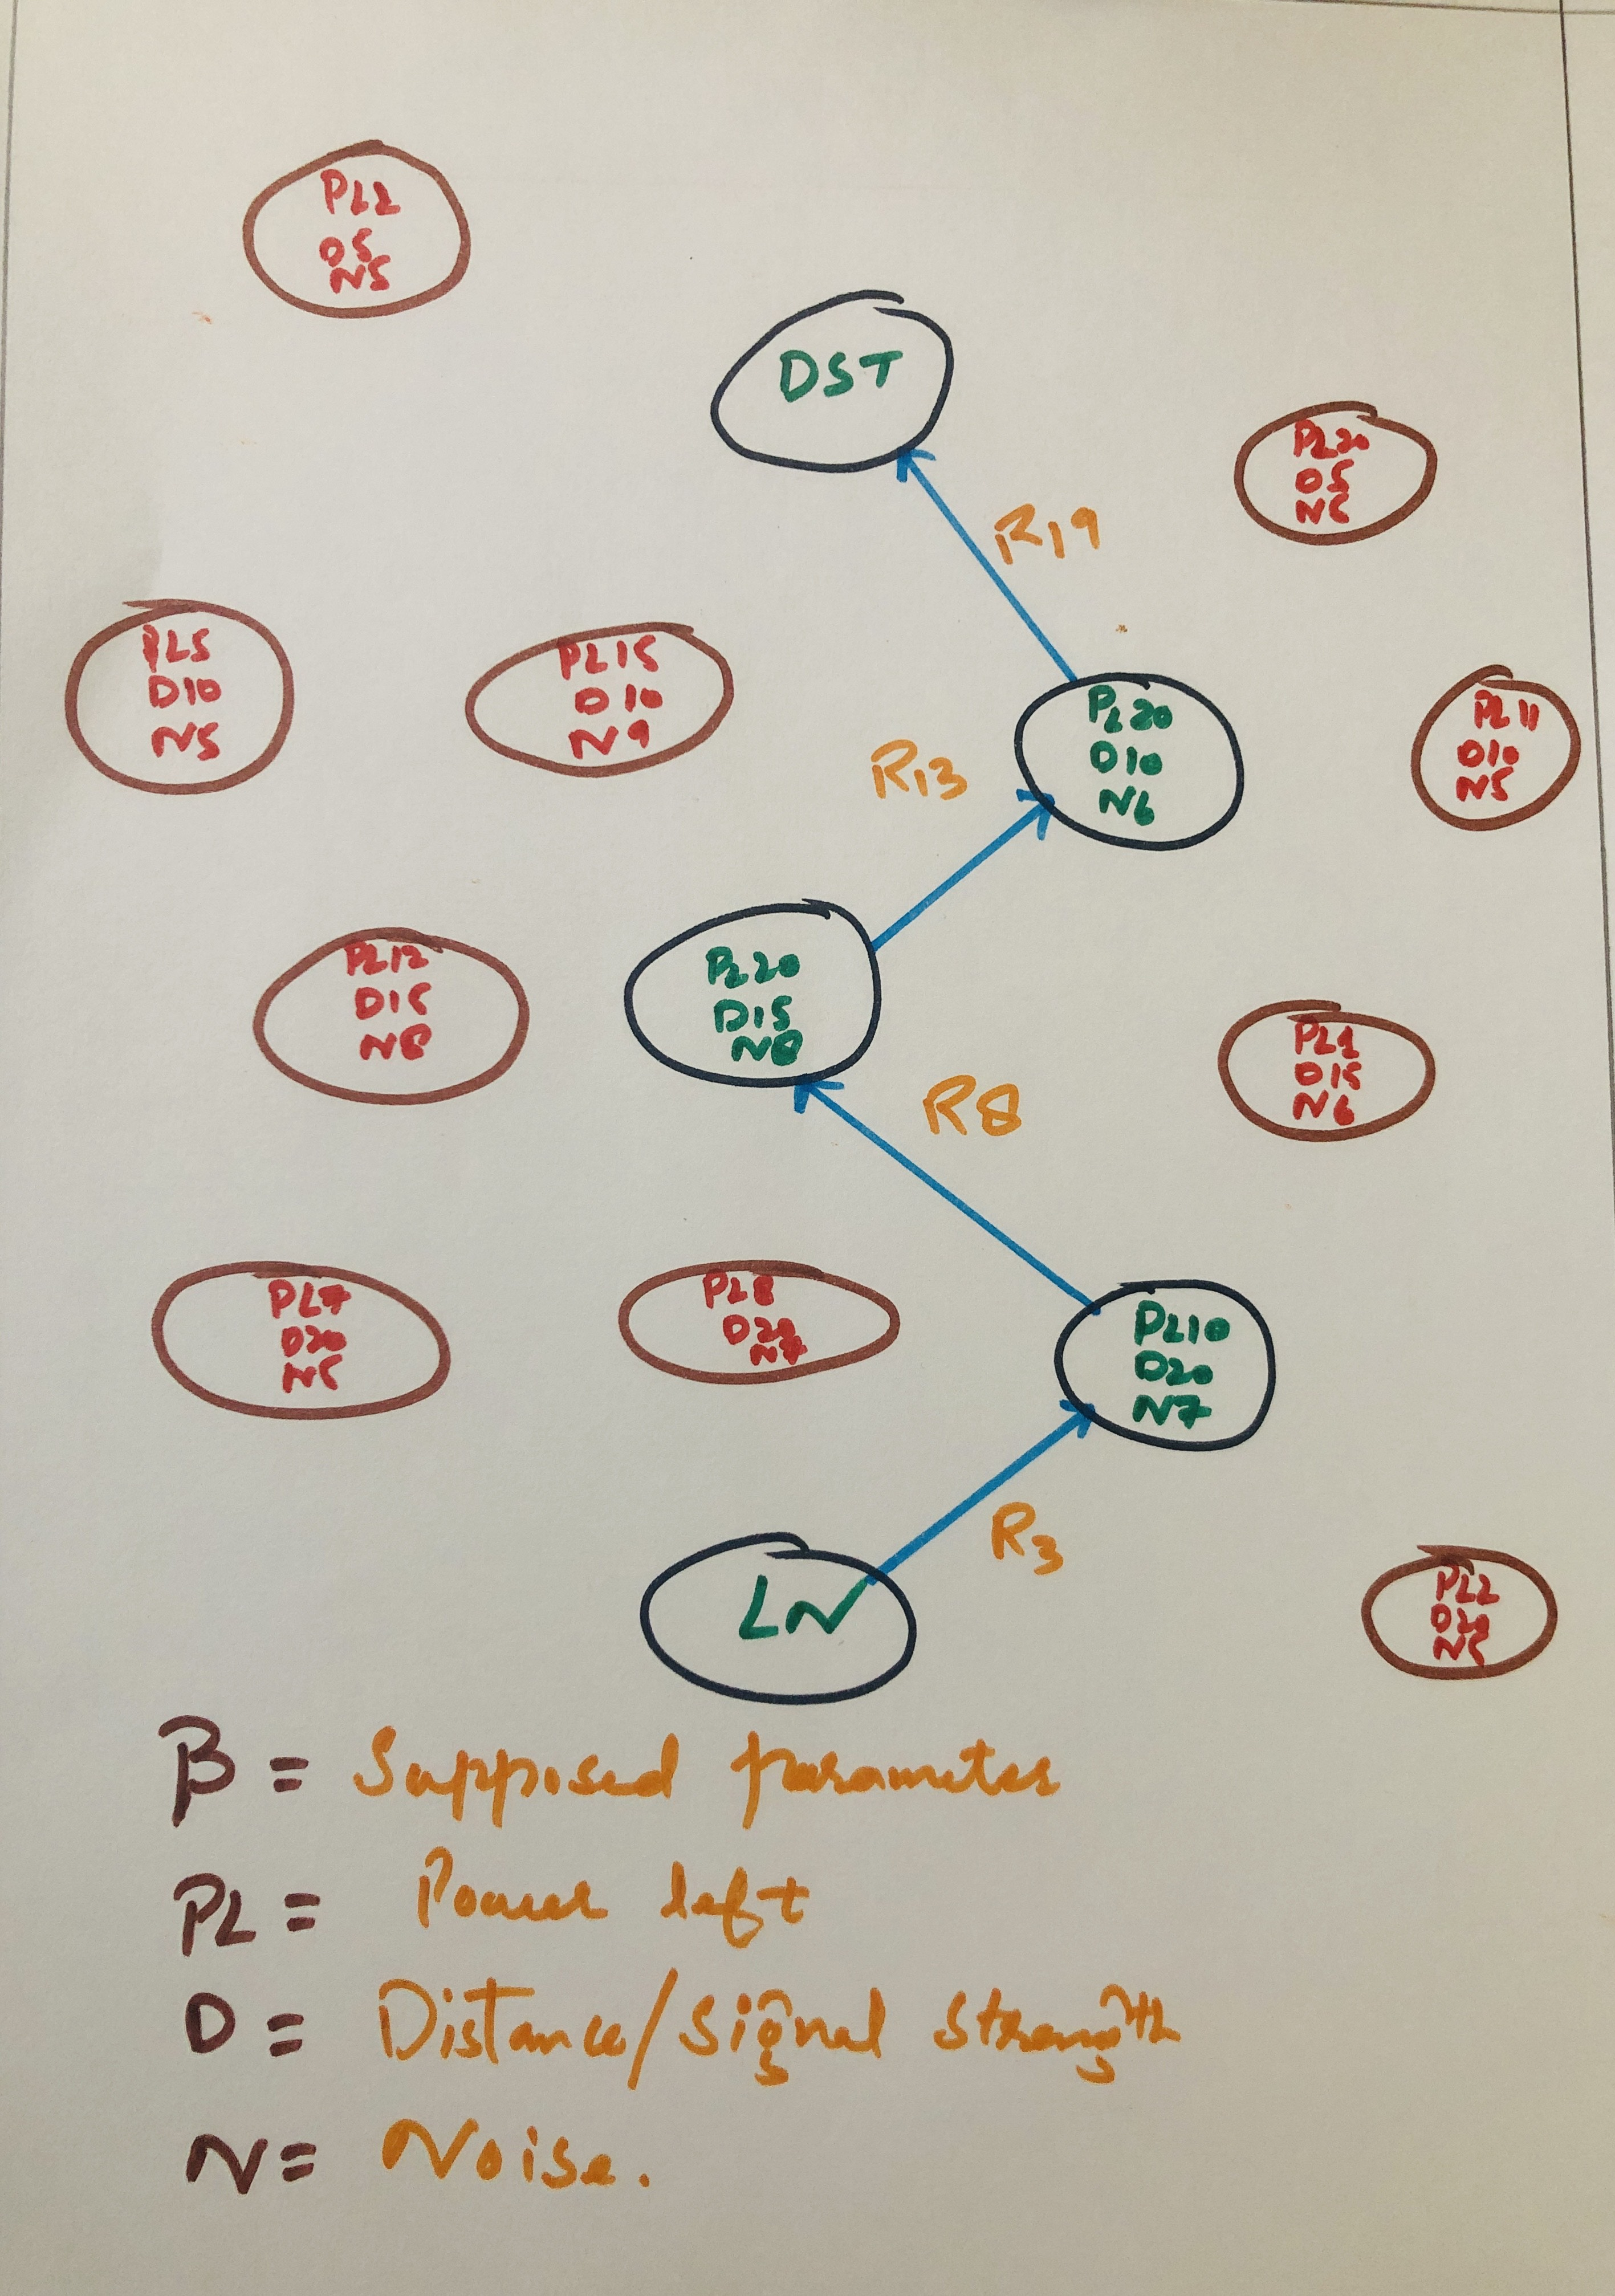 PL2
D5
N5
DST
PL20
D5
N6
R19
PL5
D10
N5
PL15
D10
N9
PL20
D10
N6
PL11
D10
N5
R13
PL12
D15
N8
PL20
D15
N8
PL1
D15
N6
R8
PL7
D20
N5
PL8
D20
N7
PL10
D20
N7
R3
LN
PL2
D20
N5
β = Supposed parameter
PL = Power left
D = Distance/Signal Strength
N = Noise.